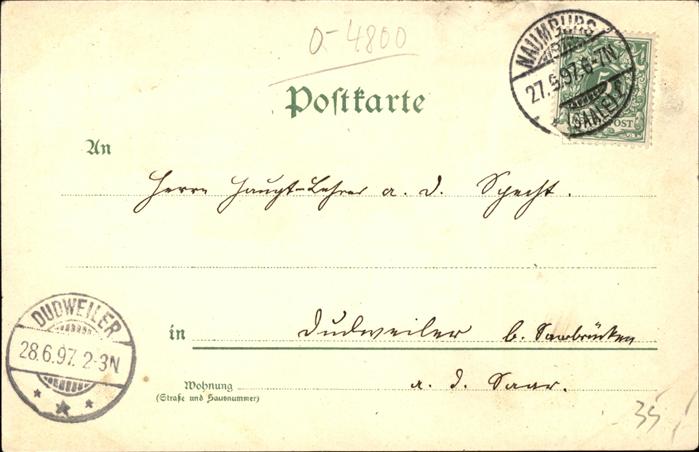 0-4800
NAUMBURG
27.6.97. 6-7N
(SAALE)
5
POST
Postkarte
An
Herrn Haupt-Lehrer a. d. Specht.
DUDWEILER
28.6.97. 2-3N
in Dudweiler b. Saarbrücken
Wohnung a. d. Saar.
(Straße und Hausnummer)
35